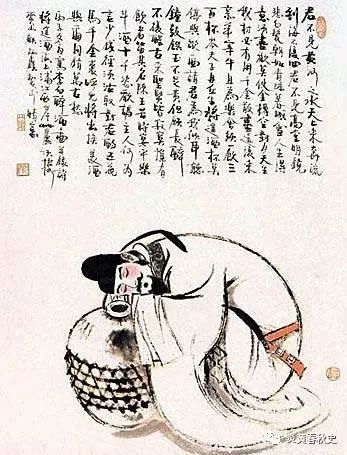 君不見黄河之水天上来奔流
到海不復回君不見高堂明鏡
悲白髮朝如青絲暮成雪人生得
意須盡歡莫使金樽空對月天生
我材必有用千金散盡還復来
烹羊宰牛且為樂會須一飲三
百杯岑夫子丹丘生將進酒杯莫
停與君歌一曲請君為我傾耳聽
鐘鼓饌玉不足貴但願長醉
不復醒古来聖賢皆寂寞惟有
飲者留其名陳王昔時宴平樂
斗酒十千恣歡謔主人何為
言少錢徑須沽取對君酌五花
馬千金裘呼兒將出換美酒
與爾同銷萬古愁
李白醉酒圖并録詩
將進酒
炎黄春秋史